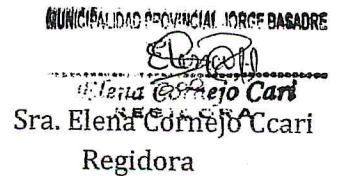 MUNICIPALIDAD PROVINCIAL JORGE BASADRE
Elena Cornejo Cari
REGIDORA
Sra. Elena Cornejo Ccari
Regidora